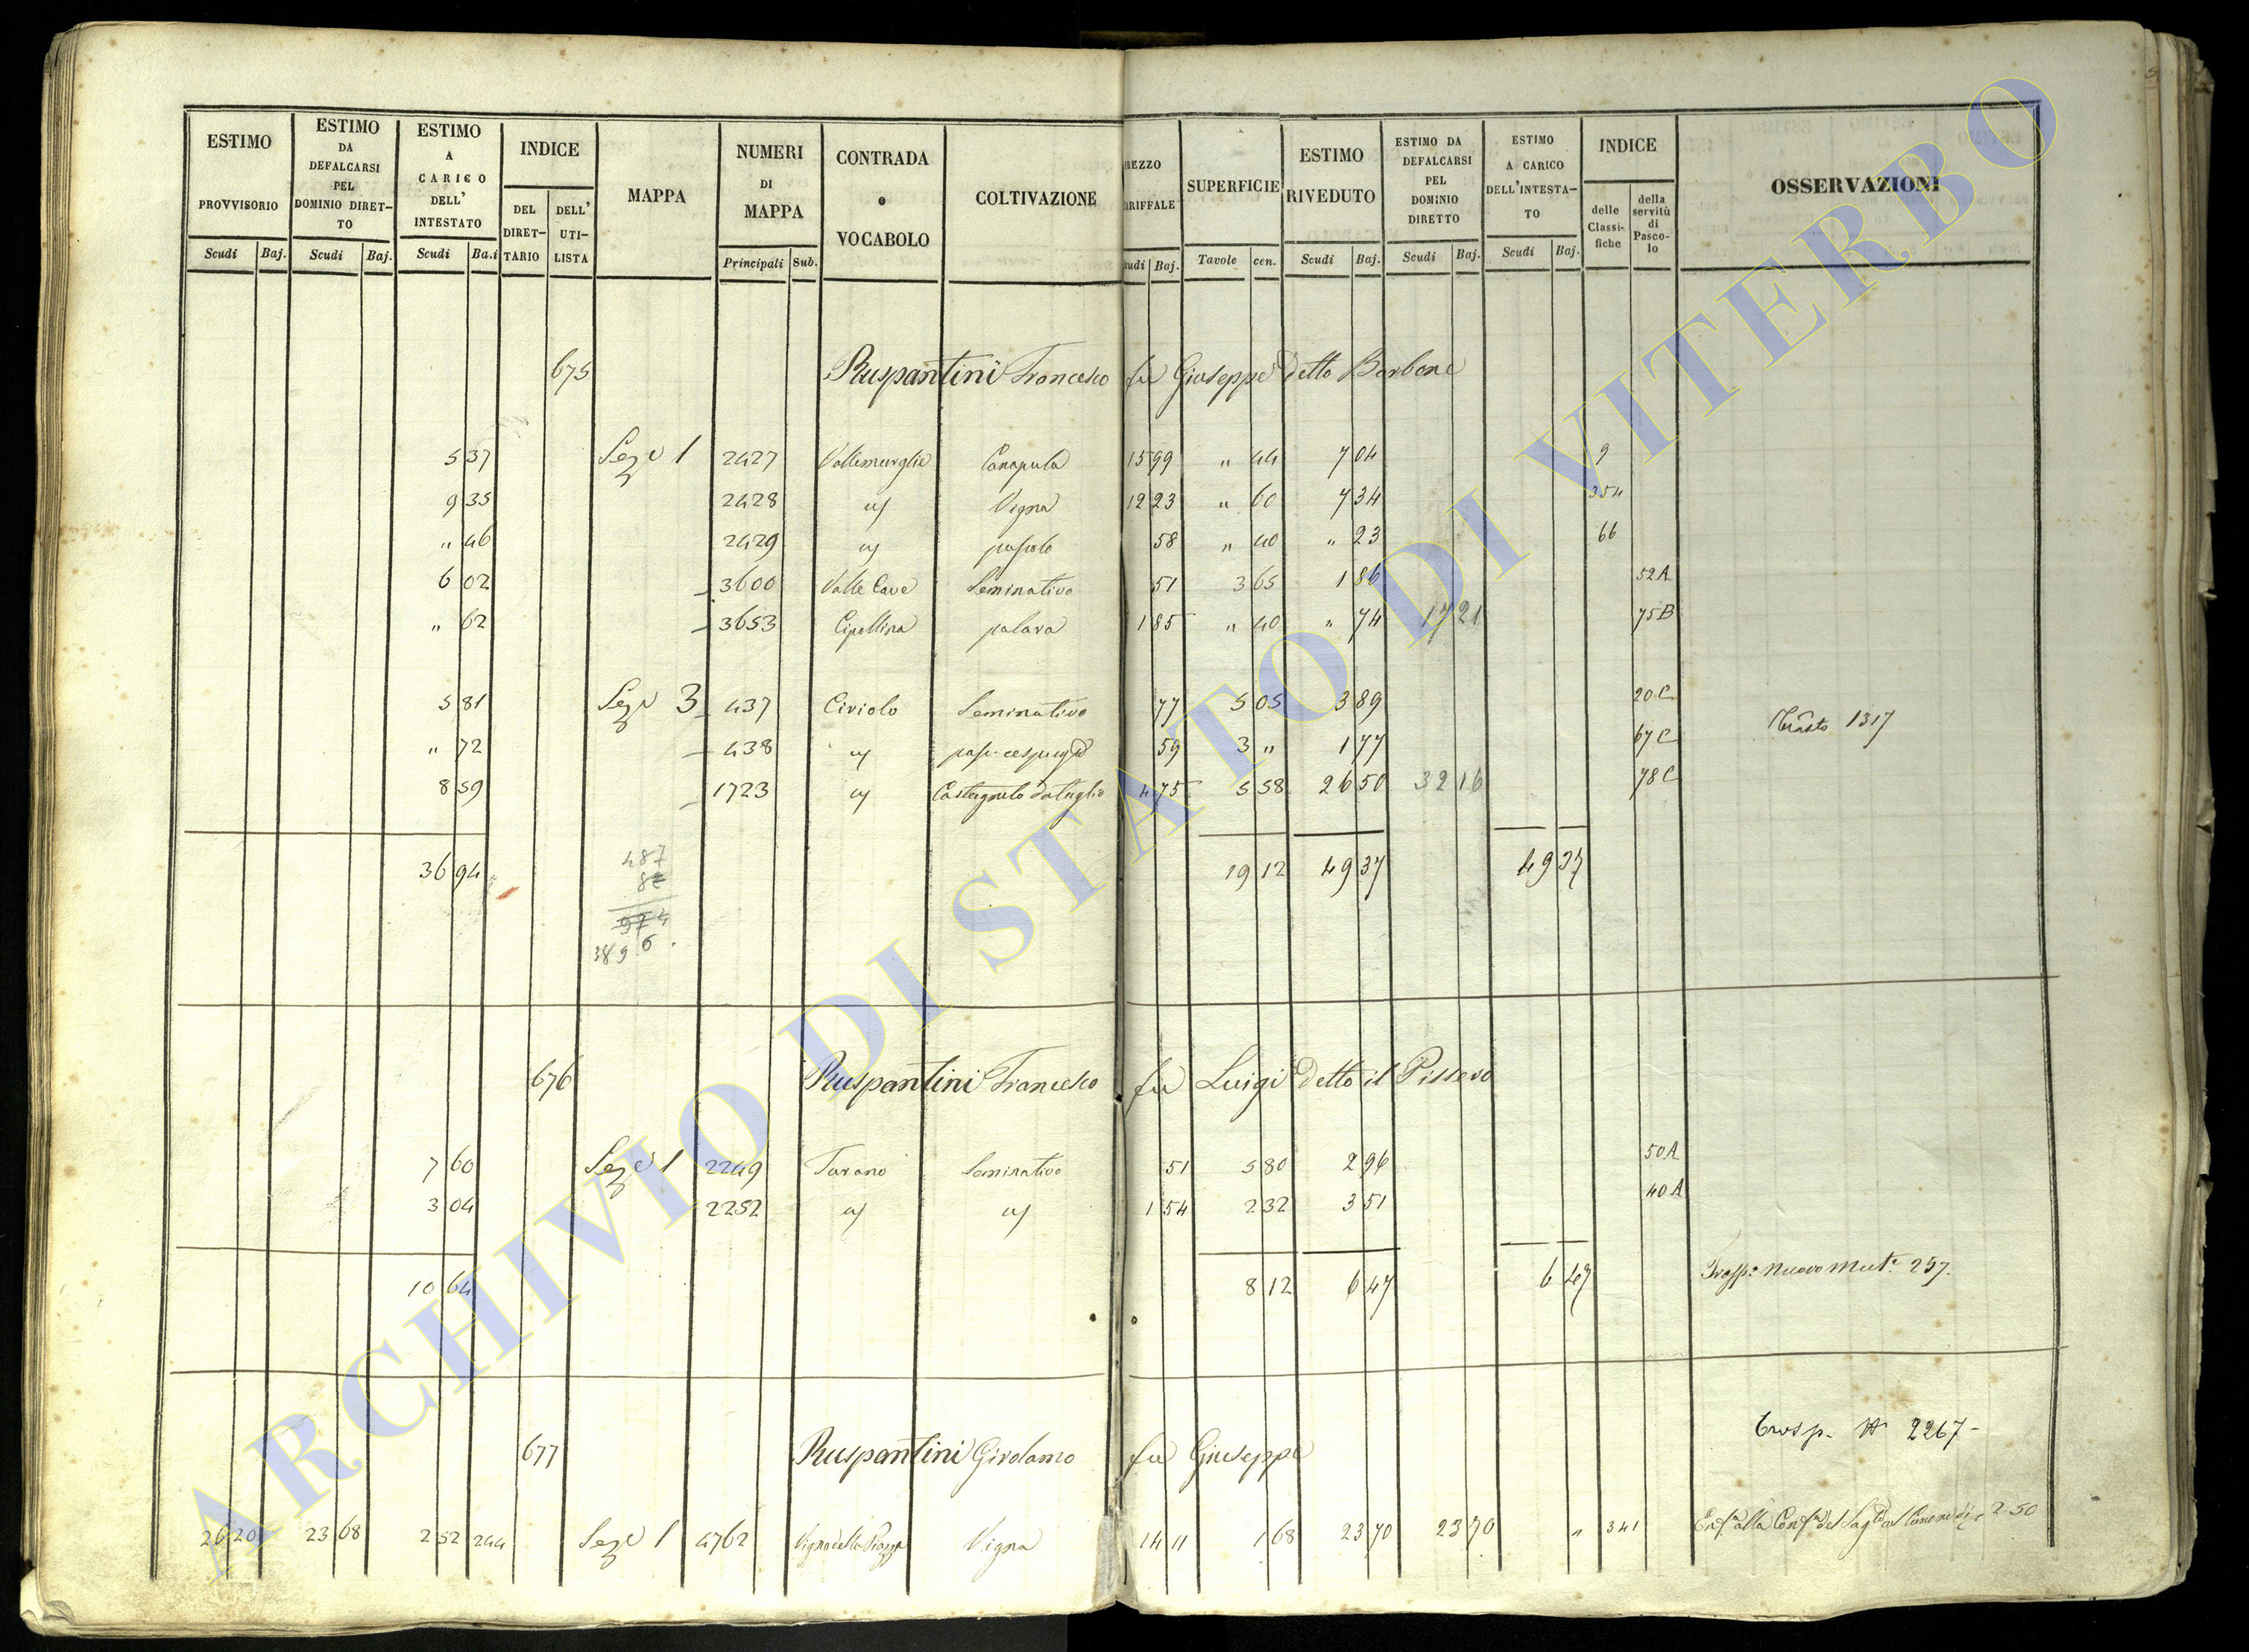 ESTIMO PROVVISORIO Scudi Baj. | ESTIMO DA DEFALCARSI PEL DOMINIO DIRET-TO Scudi Baj. | ESTIMO A CARICO DELL' INTESTATO Scudi Ba.i | INDICE DEL DIRET-TARIO DELL' UTI-LISTA | MAPPA | NUMERI DI MAPPA Principali Sub. | CONTRADA o VOCABOLO | COLTIVAZIONE | REZZO ARIFFALE udi Baj. | SUPERFICIE Tavole cen. | ESTIMO RIVEDUTO Scudi Baj. | ESTIMO DA DEFALCARSI PEL DOMINIO DIRETTO Scudi Baj. | ESTIMO A CARICO DELL'INTESTA-TO Scudi Baj. | INDICE delle Classi-fiche della servitù di Pasco-lo | OSSERVAZIONI
675 Ruspantini Francesco fu Giuseppe detto Barbone
5 37 Seze 1 2427 Canapula 15 99 " 44 7 04 9
9 35 2428 Vigna 12 23 " 60 7 34 354
" 46 2429 pascolo 58 " 40 " 23 66
6 02 3600 Valle Cave Seminativo 51 3 65 1 86 52A
" 62 3653 Cipollina palara 1 85 " 40 " 74 17 21 75B
5 81 Seze 3 437 Civiolo Seminativo 77 5 05 3 89 20C
1317
" 72 438 59 3 " 1 77 67C
8 59 1723 Castagneto da taglio 4 75 5 58 26 50 32 16 78C
36 94 19 12 49 37 49 37
487
974
389 6
676 Ruspantini Francesco fu Luigi detto il Pissero
7 60 Seze 1 2249 Tarano Seminativo 51 5 80 2 96 50A
3 04 2252 1 54 2 32 3 51 40A
10 64 8 12 6 47 6 47 Trasp. Nuovo Mut. 257.
Trasp. N 2267-
677 Ruspantini Girolamo fu Giuseppe
26 20 23 68 2 52 244 Seze 1 4762 Vigna della Piazza Vigna 14 11 1 68 23 70 23 70 " 341 2-50
ARCHIVIO DI STATO DI VITERBO